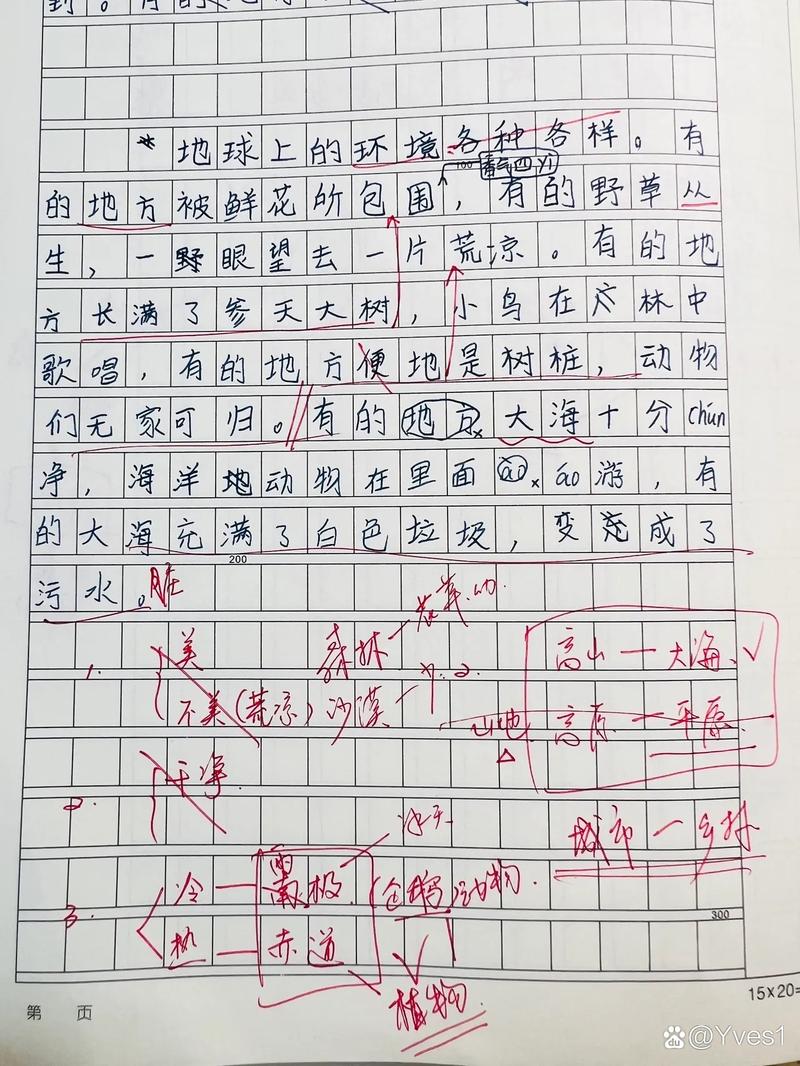 地球上的环境各种各样。有
100
香气四yì
的地方被鲜花所包围，有的野草丛
生，一野眼望去一片荒凉。有的地
方长满了参天大树，小鸟在林中
歌唱，有的地方便地是树桩，动物
们无家可归。有的地方大海十分chún
净，海洋地动物在里面áo áo游，有
的大海充满了白色垃圾，变成了
200
污水。脏
1. 美
不美(荒凉)
森林一茂草.
沙漠一
高山一大海√
山地
高原一平原
2. 干净
城市一乡村
3. 冷一南极
冰天
企鹅动物.
300
热一赤道
植物
第 页
15×20=
du @Yves1